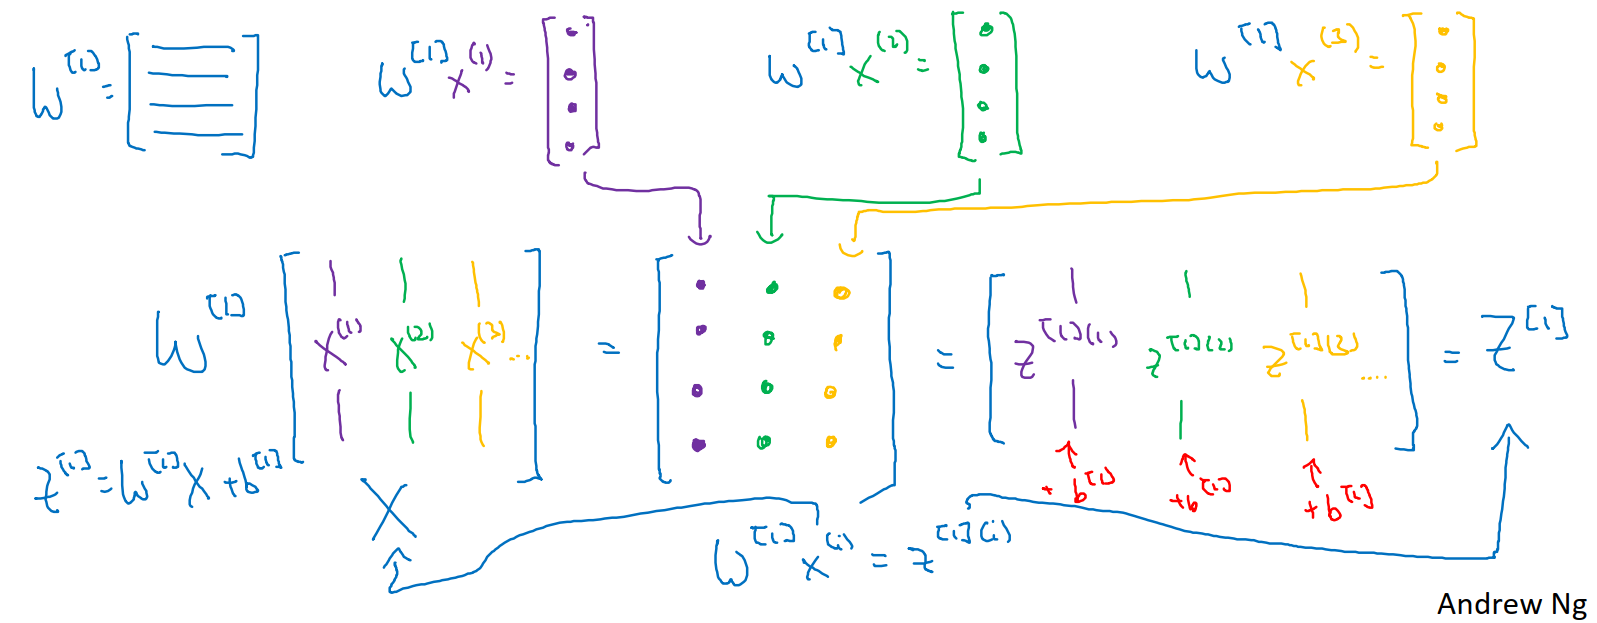 W^[1] = [ ] W^[1] x^(1) = [ ] W^[1] x^(2) = [ ] W^[1] x^(3) = [ ]
W^[1] [ x^(1) x^(2) x^(3) ... ] = [ ] = [ z^[1](1) z^[1](2) z^[1](3) .... ] = Z^[1]
z^[1] = W^[1] X + b^[1]
+ b^[1] + b^[1] + b^[1]
X
W^[1] x^(i) = z^[1](i)
Andrew Ng